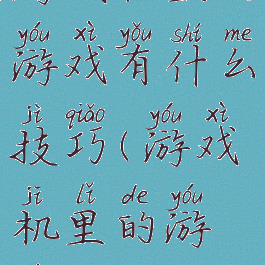 yóu xì yǒu shí me
游戏有什么
jì qiǎo yóu xì
技巧(游戏
jī lǐ de yóu
机里的游